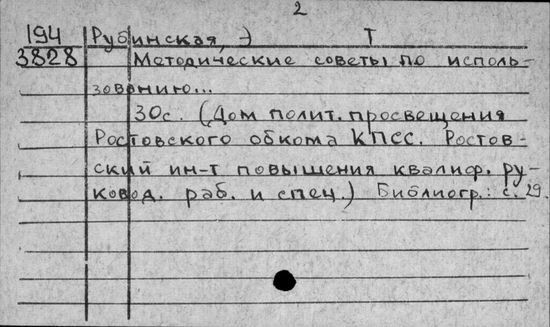 2
194 Рубинская, Э Т
3828 Методические советы по исполь-
зованию...
30с. (Дом полит. просвещения
Ростовского обкома КПСС. Ростов-
ский ин-т повышения квалиф. ру-
ковод. раб. и спец.) Библиогр.: с. 29.